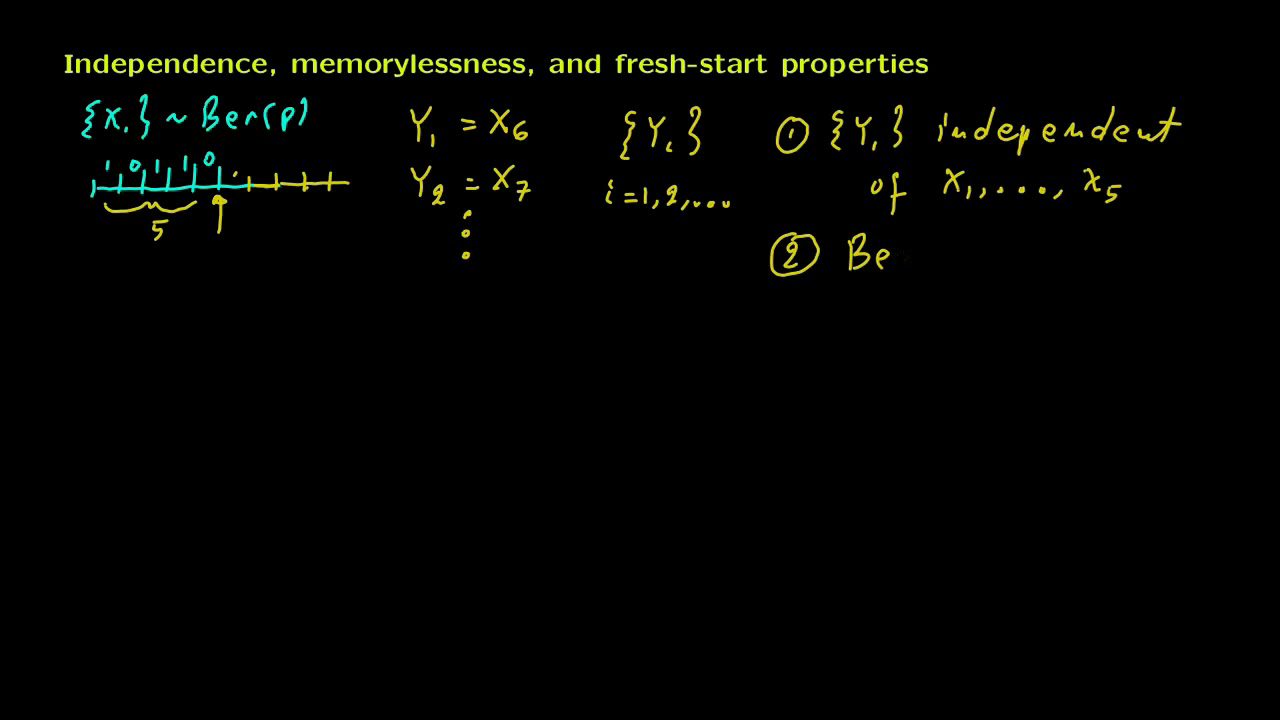 Independence, memorylessness, and fresh-start properties
{Xi} ~ Ber(p)
1 0 1 1 0
5
Y1 = X6
Y2 = X7
{Yi}
i=1,2,...
① {Yi} independent
of X1,..., X5
② Be